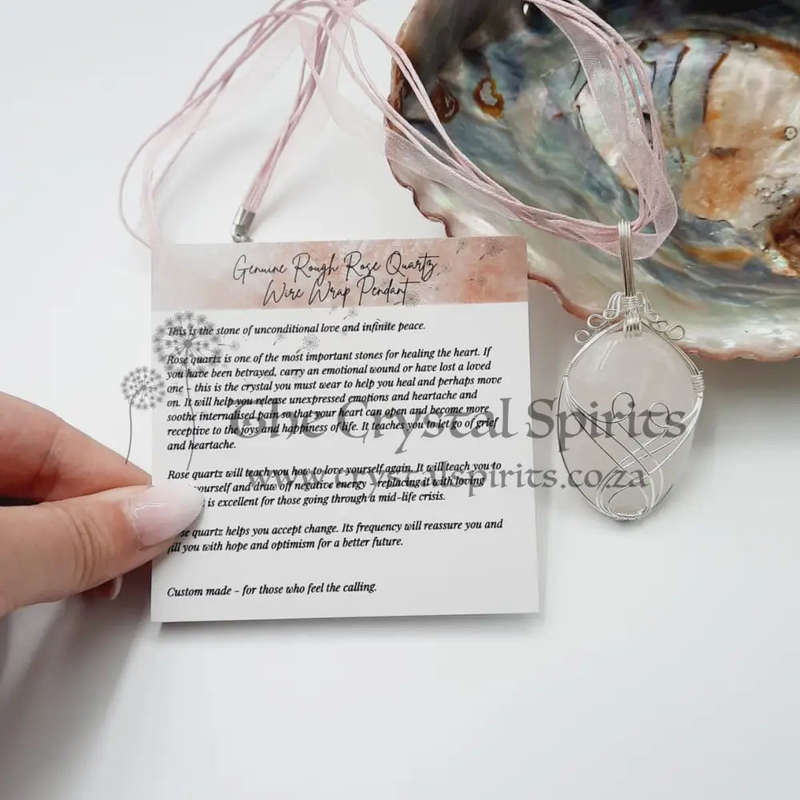 Genuine Rough Rose Quartz
Wire Wrap Pendant
This is the stone of unconditional love and infinite peace.
Rose quartz is one of the most important stones for healing the heart. If
you have been betrayed, carry an emotional wound or have lost a loved
one – this is the crystal you must wear to help you heal and perhaps move
on. It will help you release unexpressed emotions and heartache and
soothe internalised pain so that your heart can open and become more
receptive to the joys and happiness of life. It teaches you to let go of grief
and heartache.
Rose quartz will teach you how to love yourself again. It will teach you to
yourself and draw off negative energy – replacing it with loving
is excellent for those going through a mid-life crisis.
Rose quartz helps you accept change. Its frequency will reassure you and
fill you with hope and optimism for a better future.
Custom made – for those who feel the calling.
The Crystal Spirits
www.crystalspirits.co.za